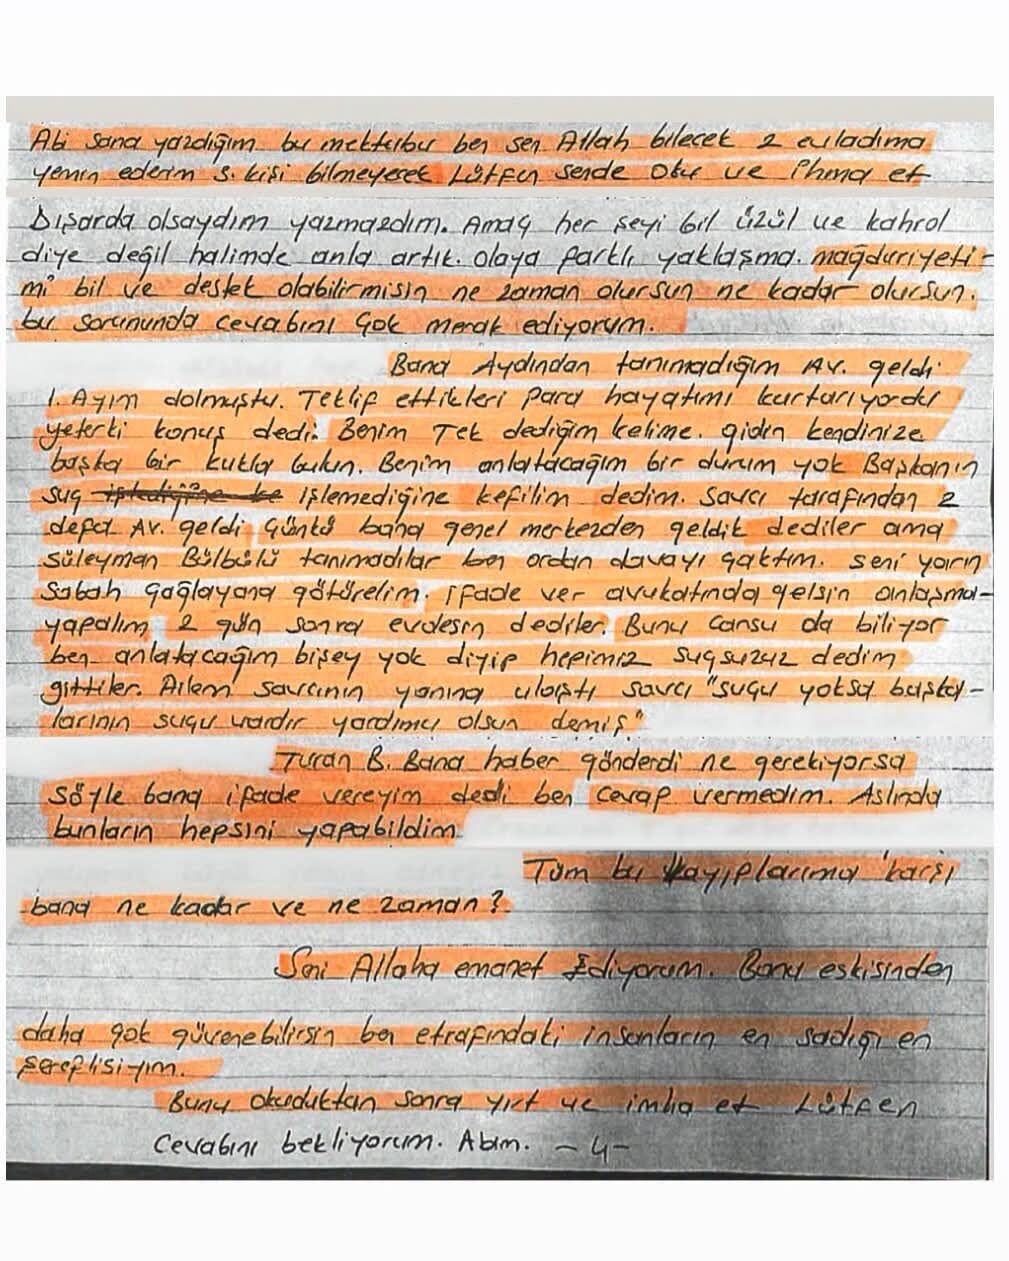 Abi sana yazdığım bu mektubu ben sen Allah bilecek 2 evladıma
yemin ederim 3. kişi bilmeyecek Lütfen sende oku ve ihma et
Dışarda olsaydım yazmazdım. Amaç her şeyi bil üzül ve kahrol
diye değil halimde anla artık. olaya farklı yaklaşma. mağduriyeti-
mi bil ve destek olabilirmisin ne zaman olursun ne kadar olursun.
bu sorununda cevabını çok merak ediyorum.
Bana Aydından tanımadığım Av. geldi
1. Ayım dolmuştu. Teklif ettikleri para hayatımı kurtarıyordu
yeterki konuş dedi. Benim Tek dediğim kelime. gidin kendinize
başka bir kukla bulun. Benim anlatacağım bir durum yok Başkanın
suç işlemediğine kefilim dedim. Savcı tarafından 2
defa Av. geldi Çünkü bana genel merkezden geldik dediler ama
Süleyman Bülbülü tanımadılar ben ordan davayı çaktım. seni yarın
Sabah Çağlayana götürelim. ifade ver avukatında gelsin anlaşma-
yapalım 2 gün sonra evdesin dediler. Bunu Cansu da biliyor
ben anlatacağım bişey yok diyip hepimiz suçsuzuz dedim
gittiler. Ailem savcının yanına ulaştı savcı "suçu yoksa başka-
larının suçu vardır yardımcı olsun demiş"
Turan B. Bana haber gönderdi ne gerekiyorsa
söyle bana ifade vereyim dedi ben cevap vermedim. Aslında
bunların hepsini yapabildim.
Tüm bu kayıplarıma karşı
bana ne kadar ve ne zaman?
Seni Allaha emanet Ediyorum. Bana eskisinden
daha çok güvenebilirsin ben etrafındaki insanların en sadığı en
şereflisiyim.
Bunu okuduktan sonra yırt ve imha et Lütfen
Cevabını bekliyorum. Abim. -4-